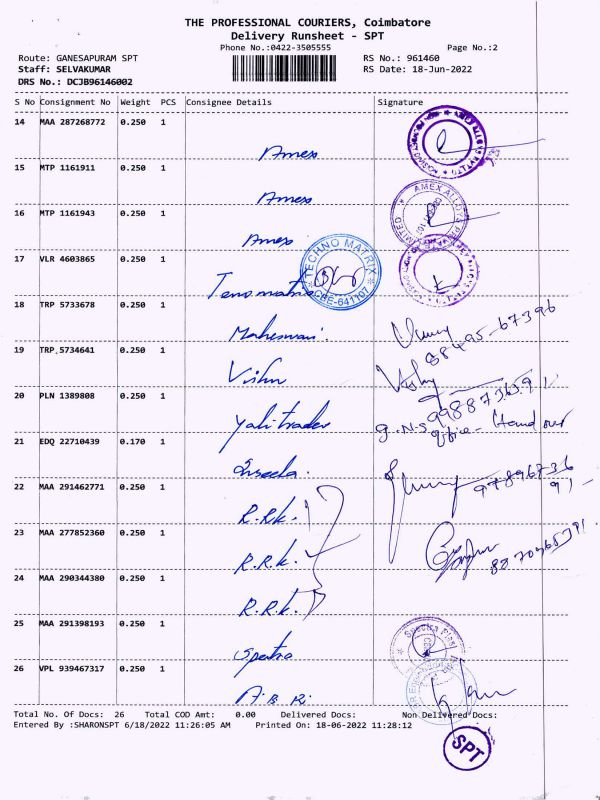 THE PROFESSIONAL COURIERS, Coimbatore
Delivery Runsheet - SPT
Phone No.:0422-3505555
Page No.:2
Route: GANESAPURAM SPT
RS No.: 961460
Staff: SELVAKUMAR
RS Date: 18-Jun-2022
DRS No.: DCJB96146002
S No Consignment No Weight PCS Consignee Details Signature
14 MAA 287268772 0.250 1
Amex
15 MTP 1161911 0.250 1
Amex
AMEX ALLOYS
16 MTP 1161943 0.250 1
Amex
17 VLR 4603865 0.250 1
TECHNO MATRIX
CBE-641107
18 TRP 5733678 0.250 1
Maheswari.
19 TRP 5734641 0.250 1
Vishu
20 PLN 1389808 0.250 1
Yali traders
G.N.S office - Hand over
21 EDQ 22710439 0.170 1
22 MAA 291462771 0.250 1
R.R.k.
23 MAA 277852360 0.250 1
R.R.k.
24 MAA 290344380 0.250 1
R.R.k.
25 MAA 291398193 0.250 1
Spectra
26 VPL 939467317 0.250 1
A.B.R.
Total No. Of Docs: 26 Total COD Amt: 0.00 Delivered Docs: Non Delivered Docs:
Entered By :SHARONSPT 6/18/2022 11:26:05 AM Printed On: 18-06-2022 11:28:12
SPT